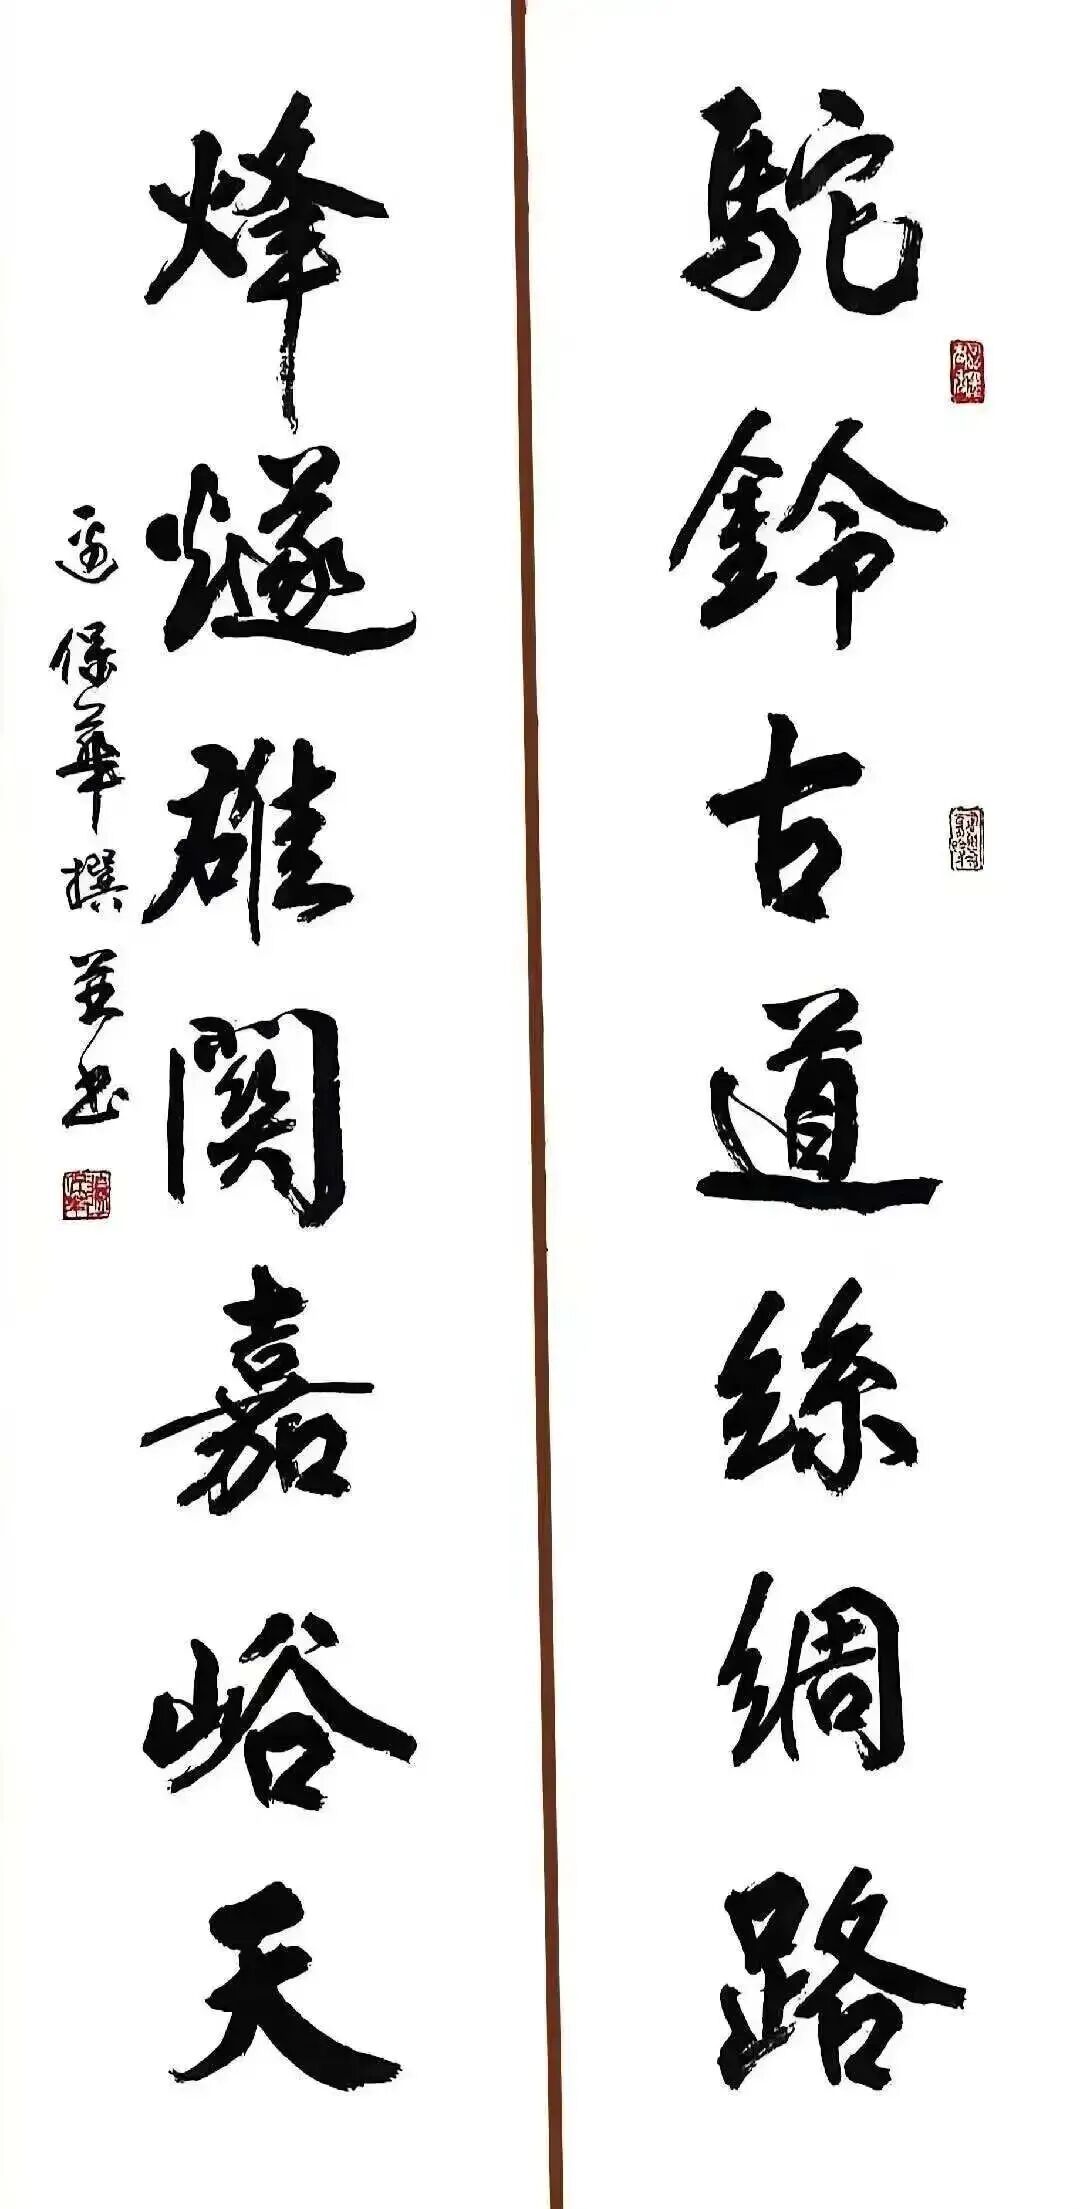 駝鈴古道絲綢路
烽燧雄關嘉峪天
邊保華撰並书